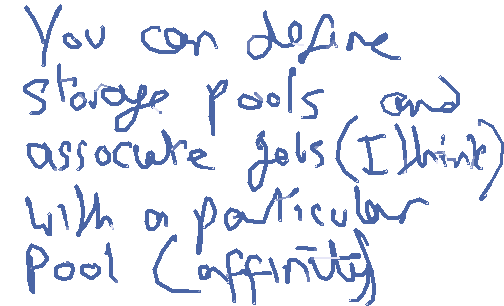 You can define
storage pools and
associate jobs (I think)
with a particular
pool (affinity)